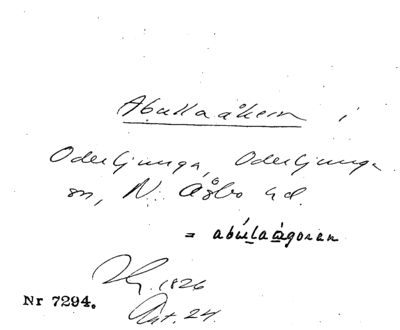 Abullaåkern i
Oderljunga, Oderljunga
sn, N. Åsbo hd.
= abúlaågoran
1826
Ant. 24.
Nr 7294.